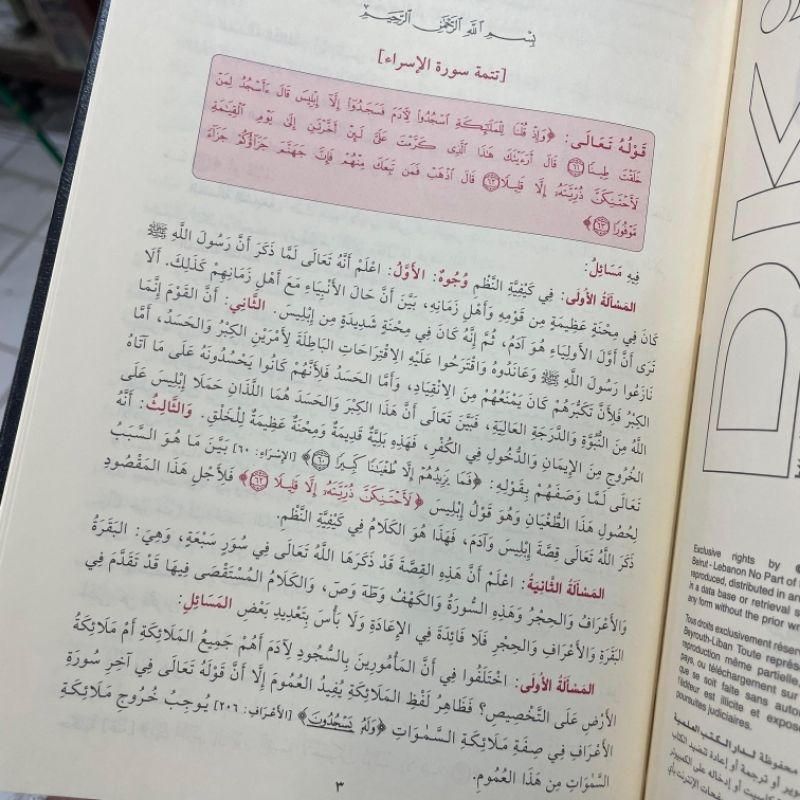 بِسْمِ اللَّهِ الرَّحْمَٰنِ الرَّحِيمِ
[تتمة سورة الإسراء]
قَوْلُهُ تَعَالَى: ﴿وَإِذْ قُلْنَا لِلْمَلَٰٓئِكَةِ ٱسْجُدُوا۟ لِأَدَمَ فَسَجَدُوٓا۟ إِلَّآ إِبْلِيسَ قَالَ ءَأَسْجُدُ لِمَنْ
خَلَقْتَ طِينًا ﴿٦١﴾ قَالَ أَرَءَيْتَكَ هَٰذَا ٱلَّذِى كَرَّمْتَ عَلَىَّ لَئِنْ أَخَّرْتَنِ إِلَىٰ يَوْمِ ٱلْقِيَٰمَةِ
لَأَحْتَنِكَنَّ ذُرِّيَّتَهُۥٓ إِلَّا قَلِيلًا ﴿٦٢﴾ قَالَ ٱذْهَبْ فَمَن تَبِعَكَ مِنْهُمْ فَإِنَّ جَهَنَّمَ جَزَآؤُكُمْ جَزَآءً
مَّوْفُورًا ﴿٦٣﴾﴾
فِيهِ مَسَائِلُ:
المَسْأَلَةُ الأُولَى: فِي كَيْفِيَّةِ النَّظْمِ وُجُوهٌ: الأَوَّلُ: اعْلَمْ أَنَّهُ تَعَالَى لَمَّا ذَكَرَ أَنَّ رَسُولَ اللَّهِ ﷺ
كَانَ فِي مِحْنَةٍ عَظِيمَةٍ مِن قَوْمِهِ وَأَهْلِ زَمَانِهِ، بَيَّنَ أَنَّ حَالَ الأَنْبِيَاءِ مَعَ أَهْلِ زَمَانِهِمْ كَذَلِكَ. أَلَا
تَرَى أَنَّ أَوَّلَ الأَولِيَاءِ هُوَ آدَمُ، ثُمَّ إِنَّهُ كَانَ فِي مِحْنَةٍ شَدِيدَةٍ مِن إِبْلِيسَ. الثَّانِي: أَنَّ القَوْمَ إِنَّمَا
نَازَعُوا رَسُولَ اللَّهِ ﷺ وَعَانَدُوهُ وَاقْتَرَحُوا عَلَيْهِ الاِقْتِرَاحَاتِ البَاطِلَةَ لِأَمْرَيْنِ الكِبْرُ وَالحَسَدُ، أَمَّا
الكِبْرُ فَلِأَنَّ تَكَبُّرَهُمْ كَانَ يَمْنَعُهُمْ مِنَ الاِنْقِيَادِ، وَأَمَّا الحَسَدُ فَلِأَنَّهُمْ كَانُوا يَحْسُدُونَهُ عَلَى مَا آتَاهُ
اللَّهُ مِنَ النُّبُوَّةِ وَالدَّرَجَةِ العَالِيَةِ، فَبَيَّنَ تَعَالَى أَنَّ هَذَا الكِبْرَ وَالحَسَدَ هُمَا اللَّذَانِ حَمَلَا إِبْلِيسَ عَلَى
الخُرُوجِ مِنَ الإِيمَانِ وَالدُّخُولِ فِي الكُفْرِ، فَهَذِهِ بَلِيَّةٌ قَدِيمَةٌ وَمِحْنَةٌ عَظِيمَةٌ لِلْخَلْقِ. وَالثَّالِثُ: أَنَّهُ
تَعَالَى لَمَّا وَصَفَهُمْ بِقَوْلِهِ: ﴿فَمَا يَزِيدُهُمْ إِلَّا طُغْيَٰنًا كَبِيرًا ﴿٦٠﴾﴾ [الإِسْرَاء: ٦٠] بَيَّنَ مَا هُوَ السَّبَبُ
لِحُصُولِ هَذَا الطُّغْيَانِ وَهُوَ قَوْلُ إِبْلِيسَ ﴿لَأَحْتَنِكَنَّ ذُرِّيَّتَهُۥٓ إِلَّا قَلِيلًا ﴿٦٢﴾﴾ فَلِأَجْلِ هَذَا المَقْصُودِ
ذَكَرَ اللَّهُ تَعَالَى قِصَّةَ إِبْلِيسَ وَآدَمَ، فَهَذَا هُوَ الكَلَامُ فِي كَيْفِيَّةِ النَّظْمِ.
المَسْأَلَةُ الثَّانِيَةُ: اعْلَمْ أَنَّ هَذِهِ القِصَّةَ قَدْ ذَكَرَهَا اللَّهُ تَعَالَى فِي سُوَرٍ سَبْعَةٍ، وَهِيَ: البَقَرَةُ
وَالأَعْرَافُ وَالحِجْرُ وَهَذِهِ السُّورَةُ وَالكَهْفُ وَطَهَ وَصَ، وَالكَلَامُ المُسْتَقْصَى فِيهَا قَدْ تَقَدَّمَ فِي
البَقَرَةِ وَالأَعْرَافِ وَالحِجْرِ فَلَا فَائِدَةَ فِي الإِعَادَةِ وَلَا بَأْسَ بِتَعْدِيدِ بَعْضِ المَسَائِلِ:
المَسْأَلَةُ الأُولَى: اخْتَلَفُوا فِي أَنَّ المَأْمُورِينَ بِالسُّجُودِ لِآدَمَ أَهُمْ جَمِيعُ المَلَائِكَةِ أَمْ مَلَائِكَةُ
الأَرْضِ عَلَى التَّخْصِيصِ؟ فَظَاهِرُ لَفْظِ المَلَائِكَةِ يُفِيدُ العُمُومَ إِلَّا أَنَّ قَوْلَهُ تَعَالَى فِي آخِرِ سُورَةِ
الأَعْرَافِ فِي صِفَةِ مَلَائِكَةِ السَّمَوَاتِ ﴿وَلَهُۥ يَسْجُدُونَ﴾ [الأَعْرَاف: ٢٠٦] يُوجِبُ خُرُوجَ مَلَائِكَةِ
السَّمَوَاتِ مِن هَذَا العُمُومِ.
٣
DK
Exclusive rights by ©
Beirut - Lebanon No Part of
reproduced, distributed in any
in a data base or retrieval s
any form without the prior wr
Tous droits exclusivement réservé
Beyrouth-Liban Toute représ
reproduction même partielle,
pays, ou téléchargement sur
que se soit faite sans autor
l'éditeur est illicite et expose
poursuites judiciaires.
محفوظة لـدار الكتب العلمية